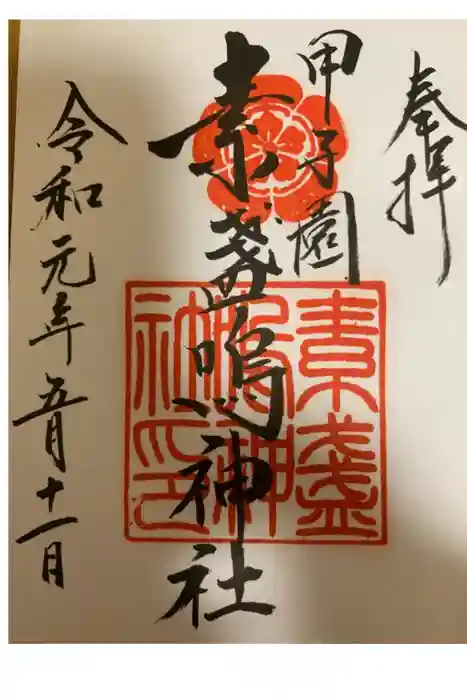 奉拝
甲子園
素盞嗚神社
素盞
嗚神
社印
令和元年五月十一日